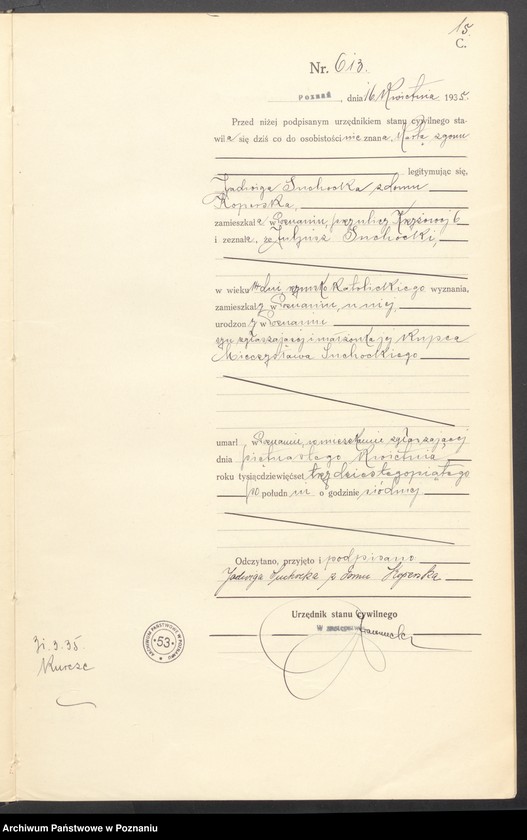 15.
C.
Nr. 613.
Poznań, dnia 16 Kwietnia 1935.
Przed niżej podpisanym urzędnikiem stanu cywilnego sta-
wiła się dziś co do osobistości nie znana, zgonu
legitymując się,
Jadwiga Suchocka z domu
Koperska,
zamieszkała w Poznaniu, przy ulicy 6
i zeznała, że Juljusz Suchocki,
w wieku dni, katolickiego wyznania,
zamieszkały w Poznaniu, u niej,
urodzony w Poznaniu
syn zgłaszającej i małżonka jej kupca
Mieczysława Suchockiego
umarł w Poznaniu, w mieszkaniu zgłaszającej
dnia piętnastego Kwietnia
roku tysiącdziewięćset trzydziestegopiątego
po południu o godzinie siódmej
Odczytano, przyjęto i podpisano
Jadwiga Suchocka z domu Koperska
Urzędnik stanu cywilnego
W zastępstwie
31.3.35.
ARCHIWUM PAŃSTWOWE W POZNANIU
53
Archiwum Państwowe w Poznaniu